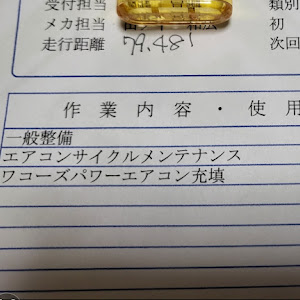 受付担当 類別
メカ担当 初
走行距離 79.481 次回
作業内容・使用
一般整備
エアコンサイクルメンテナンス
ワコーズパワーエアコン充填